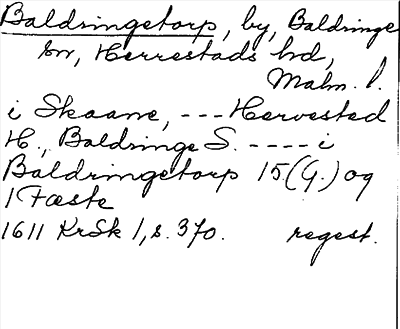 Baldringetorp, by, Baldringe
sn, Herrestads hd,
Malm. l.
i Skaane, --- Herrested
H., Baldringe S. ----- i
Baldringetorp 15 (G.) og
1 Fæste
1611 KrSk 1, s. 370. regest.